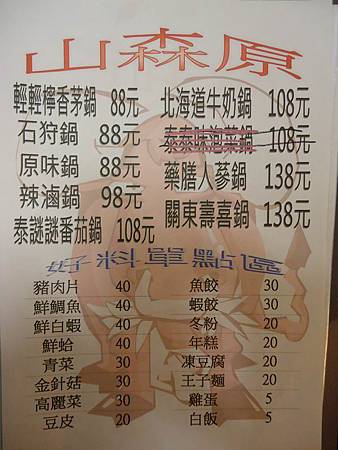 山森原
輕輕檸香茅鍋 88元 北海道牛奶鍋 108元
石狩鍋 88元 泰泰味泡菜鍋 108元
原味鍋 88元 藥膳人蔘鍋 138元
辣滷鍋 98元 關東壽喜鍋 138元
泰謎謎番茄鍋 108元
好料單點區
豬肉片 40 魚餃 30
鮮鯛魚 40 蝦餃 30
鮮白蝦 40 冬粉 20
鮮蛤 40 年糕 20
青菜 30 凍豆腐 20
金針菇 30 王子麵 20
高麗菜 30 雞蛋 5
豆皮 20 白飯 5